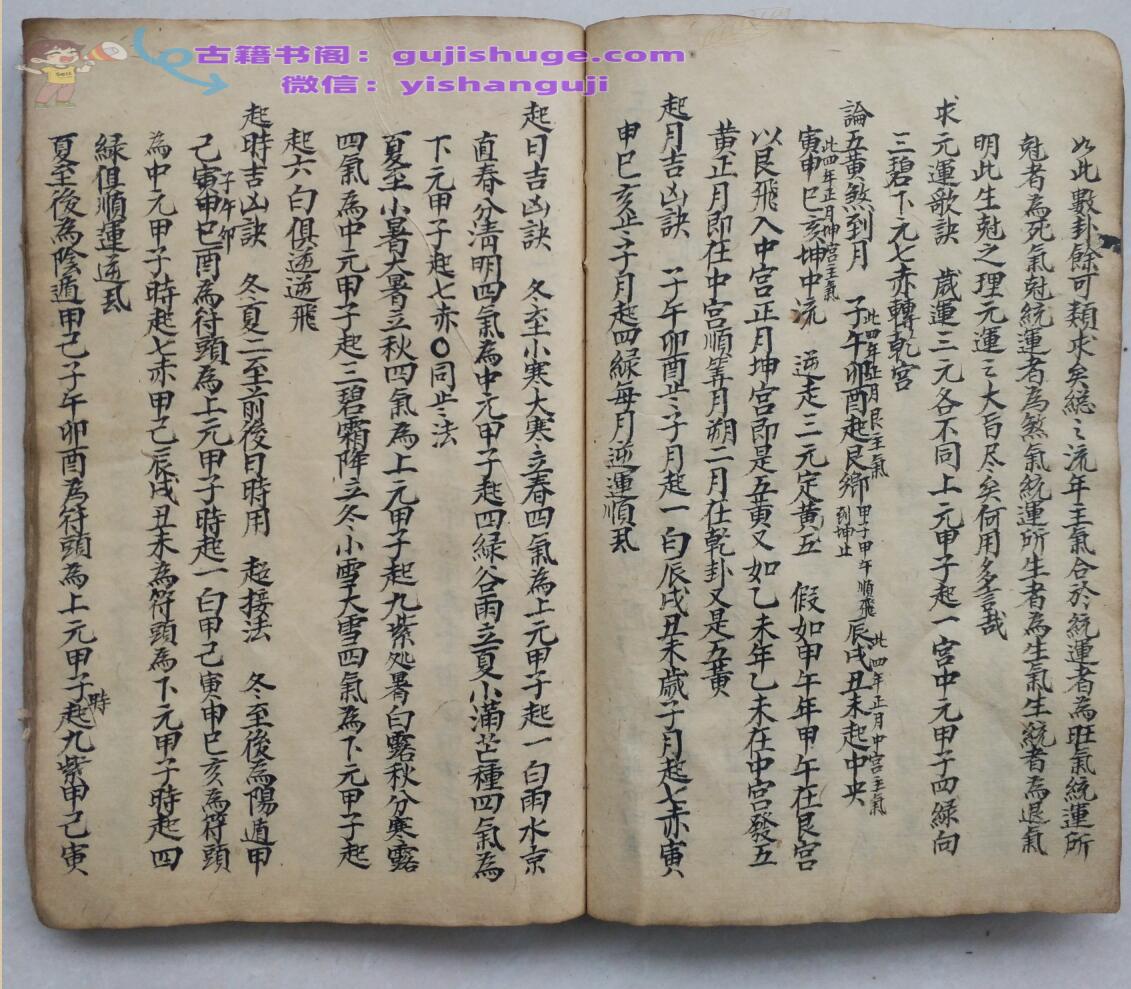 古籍书阁：gujishuge.com
微信：yishanguji
如此數卦餘可類求矣總之流年主氣合於統運者為旺氣統運所
尅者為死氣尅統運者為煞氣統運所生者為生氣生統者為退氣
明此生尅之理元運之大旨尽矣何用多言哉
求元運歌訣 歲運三元各不同上元甲子起一宮中元甲子四綠向
三碧下元七赤轉乾宮
論五黃煞到月 子午卯酉起艮鄉 此四年正月艮主氣 甲子甲午順飛到坤止 辰戌丑未起中央 此四年正月中宮主氣
寅申巳亥坤中流 此四年正月坤宮主氣 逆走三元定黃五 假如甲午年甲午在艮宮
以艮飛入中宮正月坤宮即是五黃又如乙未年乙未在中宮發五
黃正月即在中宮順筭月朔二月在乾卦又是五黃
起月吉凶訣 子午卯酉止子月起一白辰戌丑未歲子月起七赤寅
申巳亥止子月起四綠每月逆運順飛
起日吉凶訣 冬至小寒大寒立春四氣為上元甲子起一白雨水京
直春分清明四氣為中元甲子起四綠谷雨立夏小滿芒種四氣為
下元甲子起七赤〇同止法
夏至小暑大暑立秋四氣為上元甲子起九紫処暑白露秋分寒露
四氣為中元甲子起三碧霜降立冬小雪大雪四氣為下元甲子起
起六白俱逆逆飛
起時吉凶訣 冬夏二至前後日時用 起接法 冬至後為陽遁甲
己寅申巳酉為符頭為上元甲子時起一白甲己寅申巳亥為符頭
子午卯
為中元甲子時起七赤甲己辰戌丑未為符頭為下元甲子時起四
綠俱順運逆飛
夏至後為陰遁甲己子午卯酉為符頭為上元甲子時起九紫甲己寅